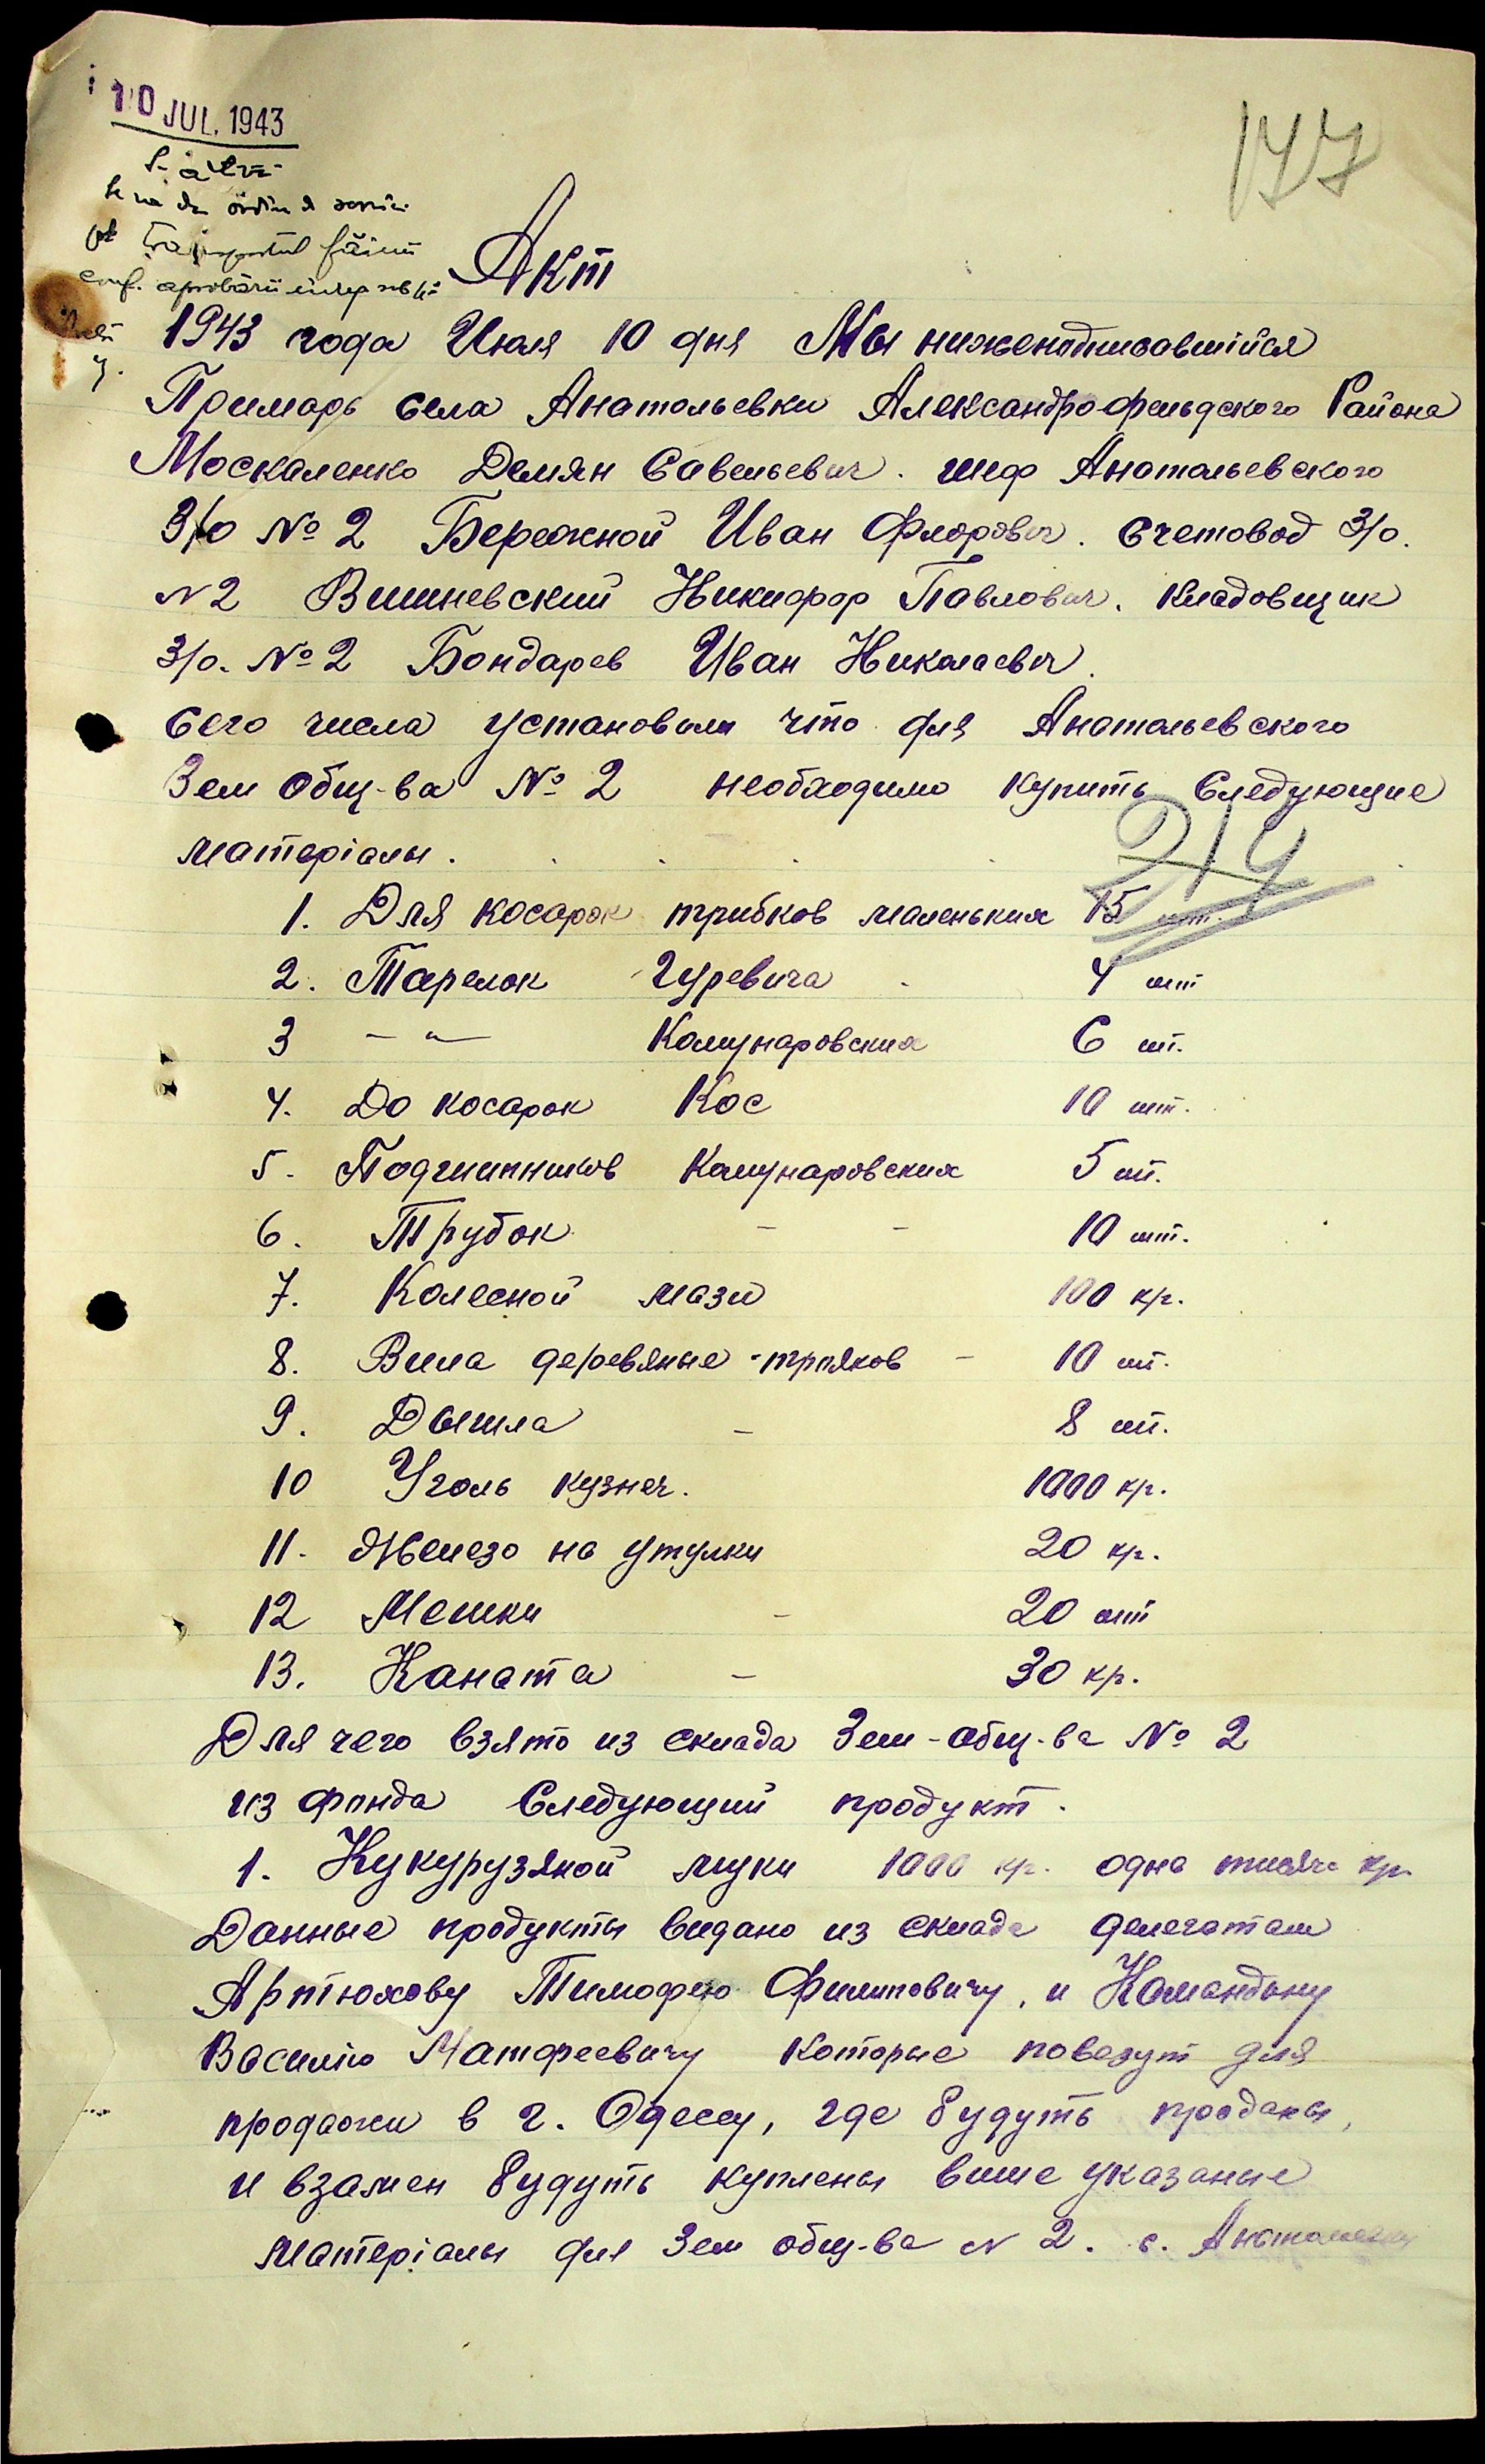 10 JUL. 1943
177
transportul făinii
conf. aprobării
Акт
1943 года Июля 10 дня Мы нижеподписавшийся
Примарь села Анатольевки Александрофельдского Района
Москаленко Демян Савельевич. шеф Анатольевского
З/о № 2 Бережной Иван Флорович. Счетовод З/о.
N 2 Вишневский Никифор Павлович. Кладовщик
З/о. № 2 Бондарев Иван Николаевич.
Сего числа установили что для Анатольевского
Зем общ-ва № 2 необходимо купить Следующие
матеріалы.
214
1. Для косарок трибков маленьких 15 шт.
2. Тарелок Гуревича 4 шт
3 — " — Комунаровских 6 шт.
4. До косарок Кос 10 шт.
5. Подшипников Комунаровских 5 шт.
6. Трубок - - 10 шт.
7. Колесной мази 100 кг.
8. Вила деревяные - трояков - 10 шт.
9. Дышла - 8 шт.
10 Уголь кузнеч. 1000 кг.
11. Железо на утулки 20 кг.
12 Мешки - 20 шт
13. Каната - 30 кг.
Для чего взято из склада Зем-общ-ва № 2
из фонда Следующий продукт.
1. Кукурузяной муки 1000 кг. одна тисяча кг.
Данные продукты видано из склада делегатам
Артюхову Тимофею Филиповичу, и Комендону
Василію Матфеевичу которые повезут для
продажи в г. Одессу, где будуть проданы,
и взамен будуть куплены више указаные
матеріалы для Зем общ-ва N 2. с. Анатольевки